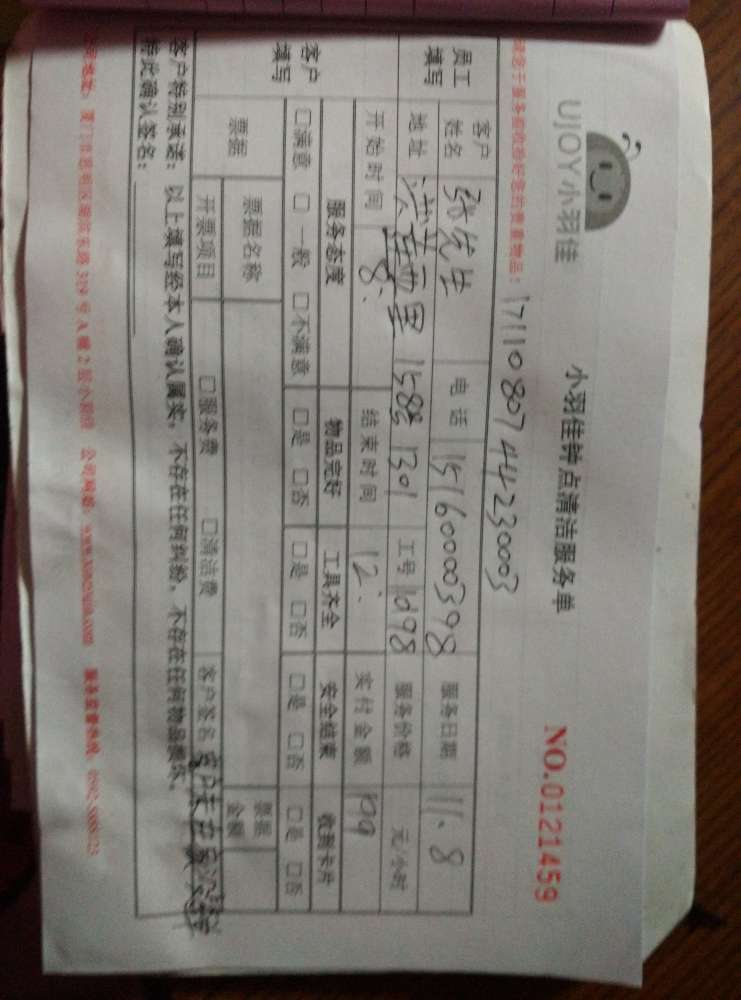 UJOY小羽佳
小羽佳钟点清洁服务单
NO.0121459
171108074423 0003
员工填写
客户姓名 张先生 电话 15160000398 服务日期 11.8
地址 洪莲西里 158号 1301 工号 1098 服务价格 元/小时
开始时间 8: 结束时间 12: 实付金额 109
客户填写
服务态度 物品完好 工具齐全 安全结束 收到卡片
□满意 □一般 □不满意 □是 □否 □是 □否 □是 □否 □是 □否
票据 票据名称 票据金额
开票项目 □服务费 □清洁费 客户签名 客户未在
客户特别承诺：以上填写经本人确认属实，不存在任何纠纷，不存在任何物品损坏。
特此确认签名：
319号A幢2层小羽佳 公司网站：